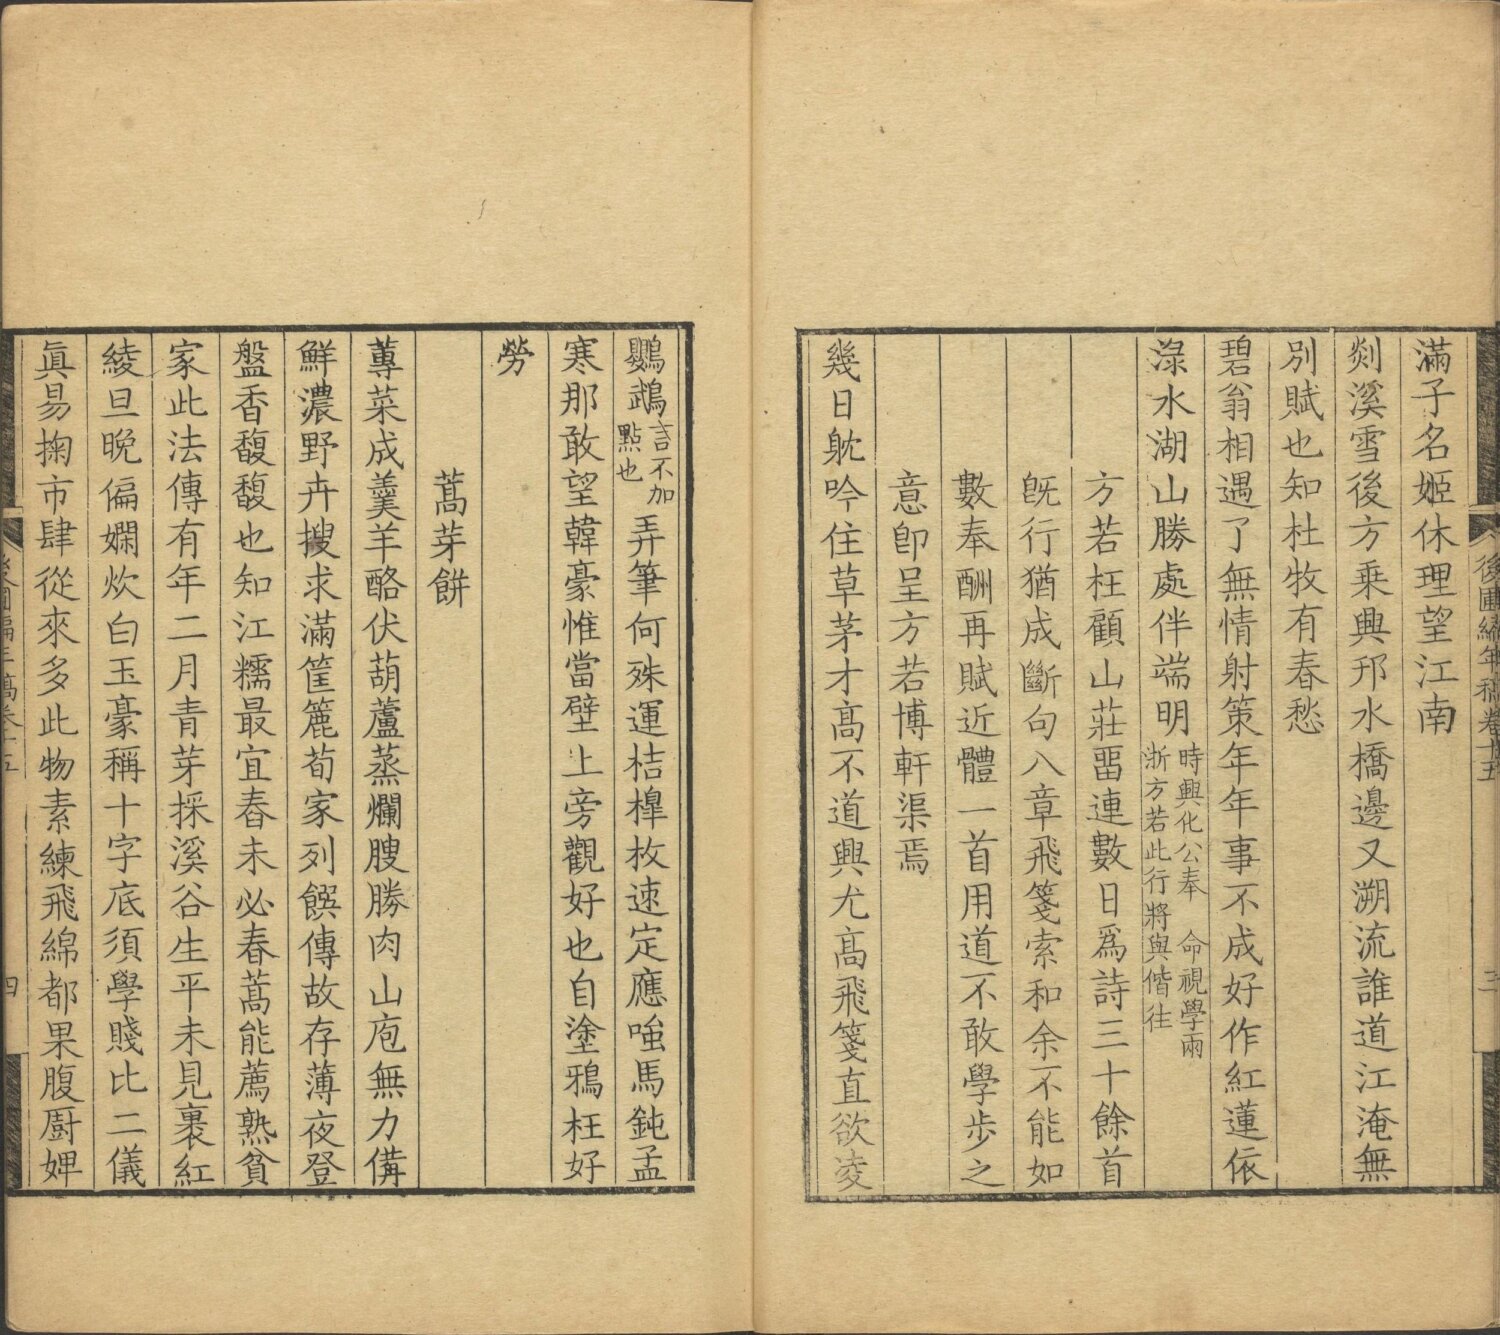 滿子名姬休理望江南
剡溪雪後方乗興邗水橋邊又溯流誰道江淹無
別賦也知杜牧有春愁
碧翁相遇了無情射策年年事不成好作紅蓮依
淥水湖山勝處伴端明時興化公奉　命視學兩
浙方若此行將與偕往
方若枉顧山莊畱連數日爲詩三十餘首
旣行猶成斷句八章飛箋索和余不能如
數奉酬再賦近體一首用道不敢學步之
意卽呈方若博軒渠焉
幾日躭吟住草茅才高不道興尤高飛箋直欲凌
後圃編年稿卷十五
三
鸚鵡言不加
點也弄筆何殊運桔槹枚速定應嗤馬鈍孟
寒那敢望韓豪惟當壁上旁觀好也自塗鴉枉好
勞
蒿芽餅
蓴菜成羹羊酪伏葫蘆蒸爛膄勝肉山庖無力備
鮮濃野卉搜求滿筐簏荀家列饌傳故存薄夜登
盤香馥馥也知江糯最宜舂未必春蒿能薦熟貧
家此法傳有年二月青芽採溪谷生平未見裹紅
綾旦晚偏嫻炊白玉豪稱十字底須學賤比二儀
眞易掬市肆從來多此物素練飛綿都果腹厨婢
後圃編年稿卷十五
四